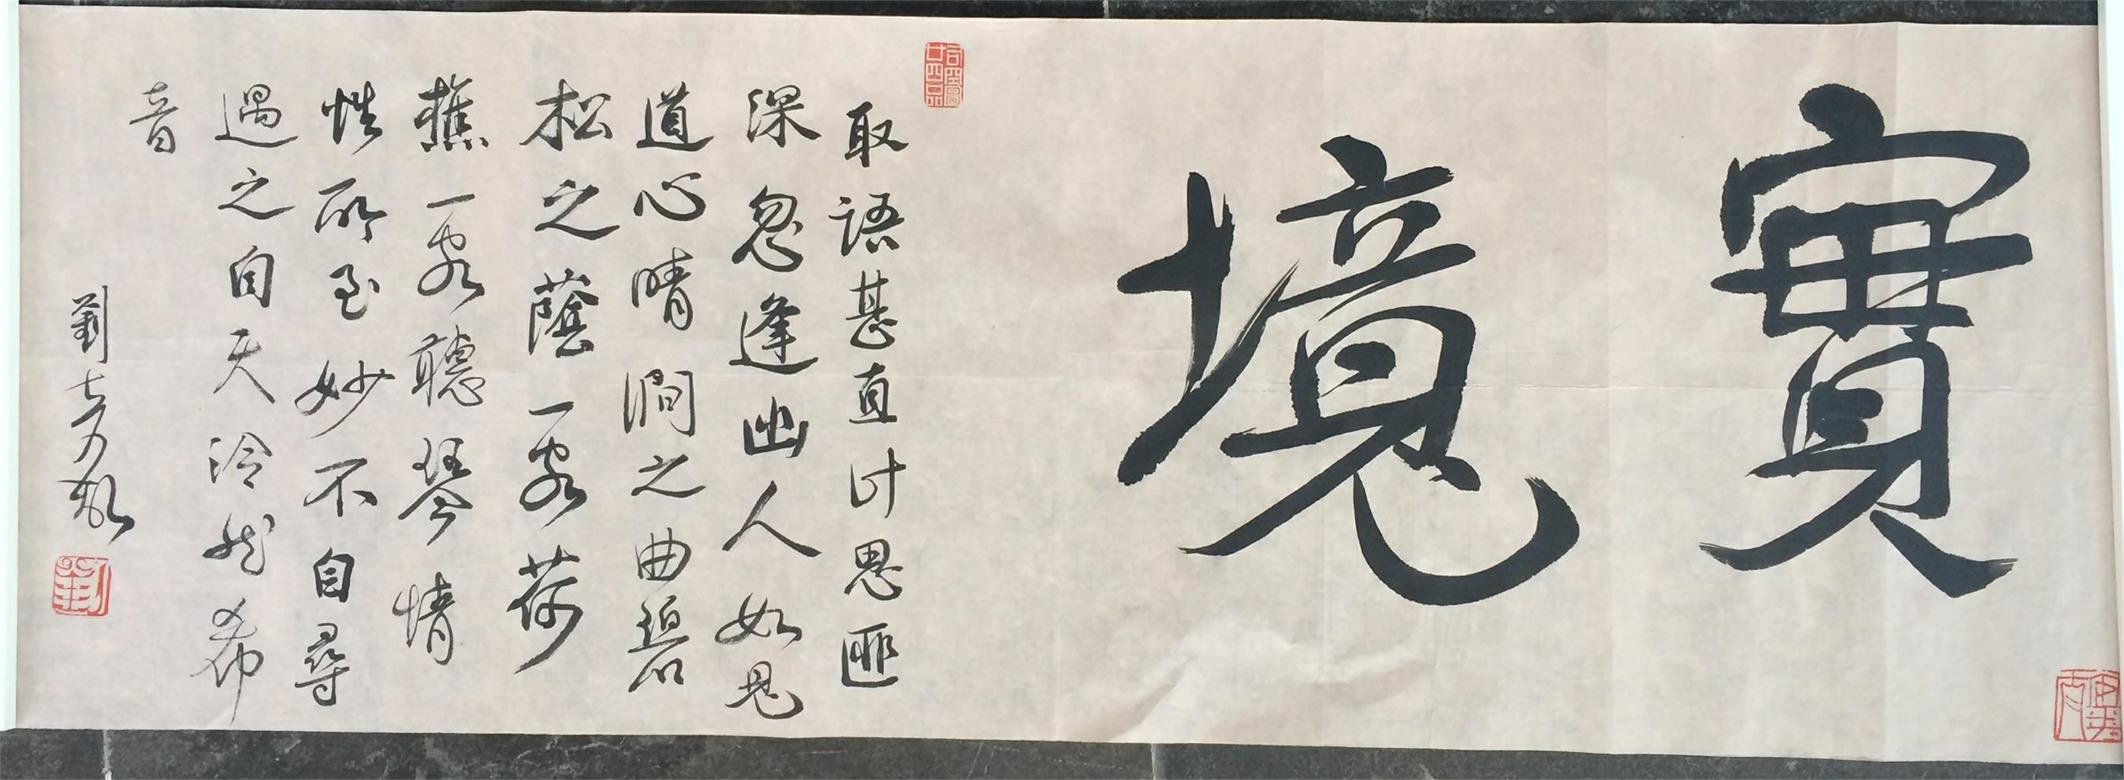 實境
司空圖
廿四品
取語甚直計思匪
深忽逢幽人如見
道心晴澗之曲碧
松之蔭一客荷
樵一客聽琴情
性所至妙不自尋
遇之自天泠然希
音
劉